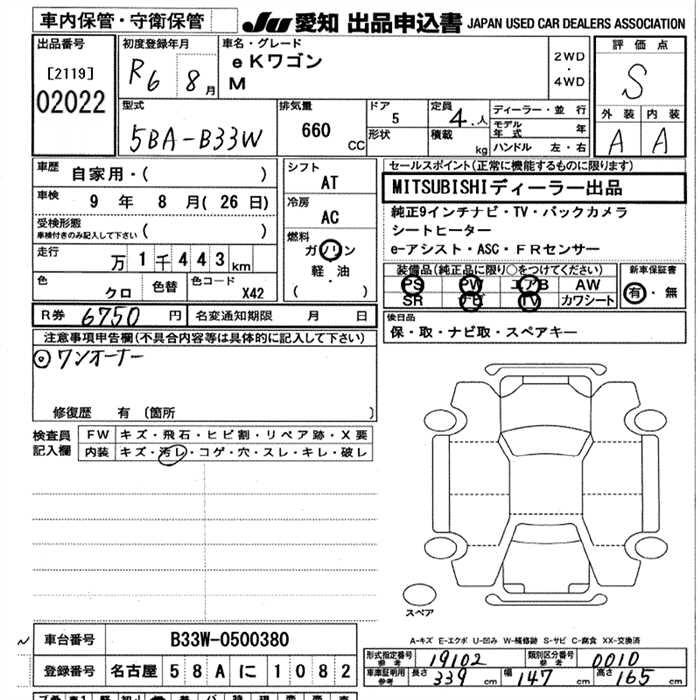 車内保管・守衛保管
JU 愛知 出品申込書 JAPAN USED CAR DEALERS ASSOCIATION
出品番号
[2119]
02022
初度登録年月
R6 8月
車名・グレード
eKワゴン
M
2WD
・
4WD
評価点
S
外装 内装
A A
型式
5BA-B33W
排気量
660
CC
ドア
5
形状
定員
4.人
積載
kg
ディーラー・並行
モデル年式 年
ハンドル 左・右
車歴
自家用・( )
車検
9 年 8 月( 26 日)
受検形態
車検付きのみ記入して下さい ( )
走行
万 1 千 4 4 3 km
色
クロ
色替
色コード
X42
シフト
AT
冷房
AC
燃料
ガソリン
軽・油
( )
セールスポイント(正常に機能するものに限ります)
MITSUBISHIディーラー出品
純正9インチナビ・TV・バックカメラ
シートヒーター
e-アシスト・ASC・FRセンサー
装備品(純正品に限り○をつけてください)
PS PW エアB AW
SR ナビ TV カワシート
新車保証書
有・無
R券 6750 円
名変通知期限 月 日
後日品
保・取・ナビ取・スペアキー
注意事項申告欄(不具合内容等は具体的に記入して下さい)
◎ワンオーナー
修復歴 有 (箇所 )
検査員
記入欄
FW キズ・飛石・ヒビ割・リペア跡・X要
内装 キズ・汚レ・コゲ・穴・スレ・キレ・破レ
スペア
A-キズ E-エクボ U-凹み W-補修跡 S-サビ C-腐食 XX-交換済
~
車台番号 B33W-0500380
登録番号 名古屋 5 8 A に 1 0 8 2
形式指定番号
参考
19102
類別区分番号
参考
0010
車庫証明用
参考
長さ 339 cm 幅 147 cm 高さ 165 cm